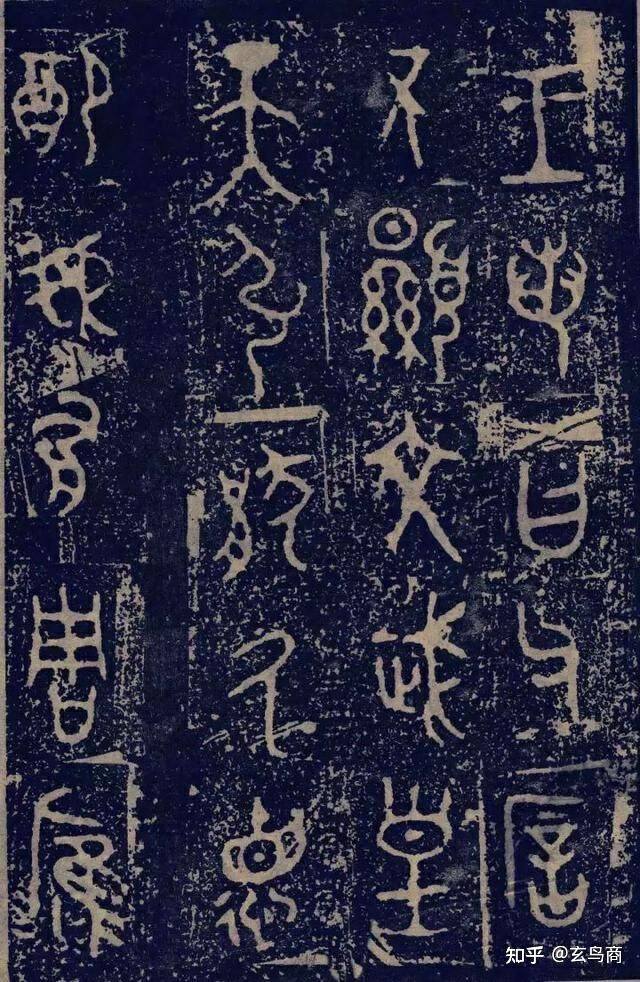 王若曰父㕣
不顯文武皇
天引猒氒德
配我有周膺
知乎 @玄鸟商